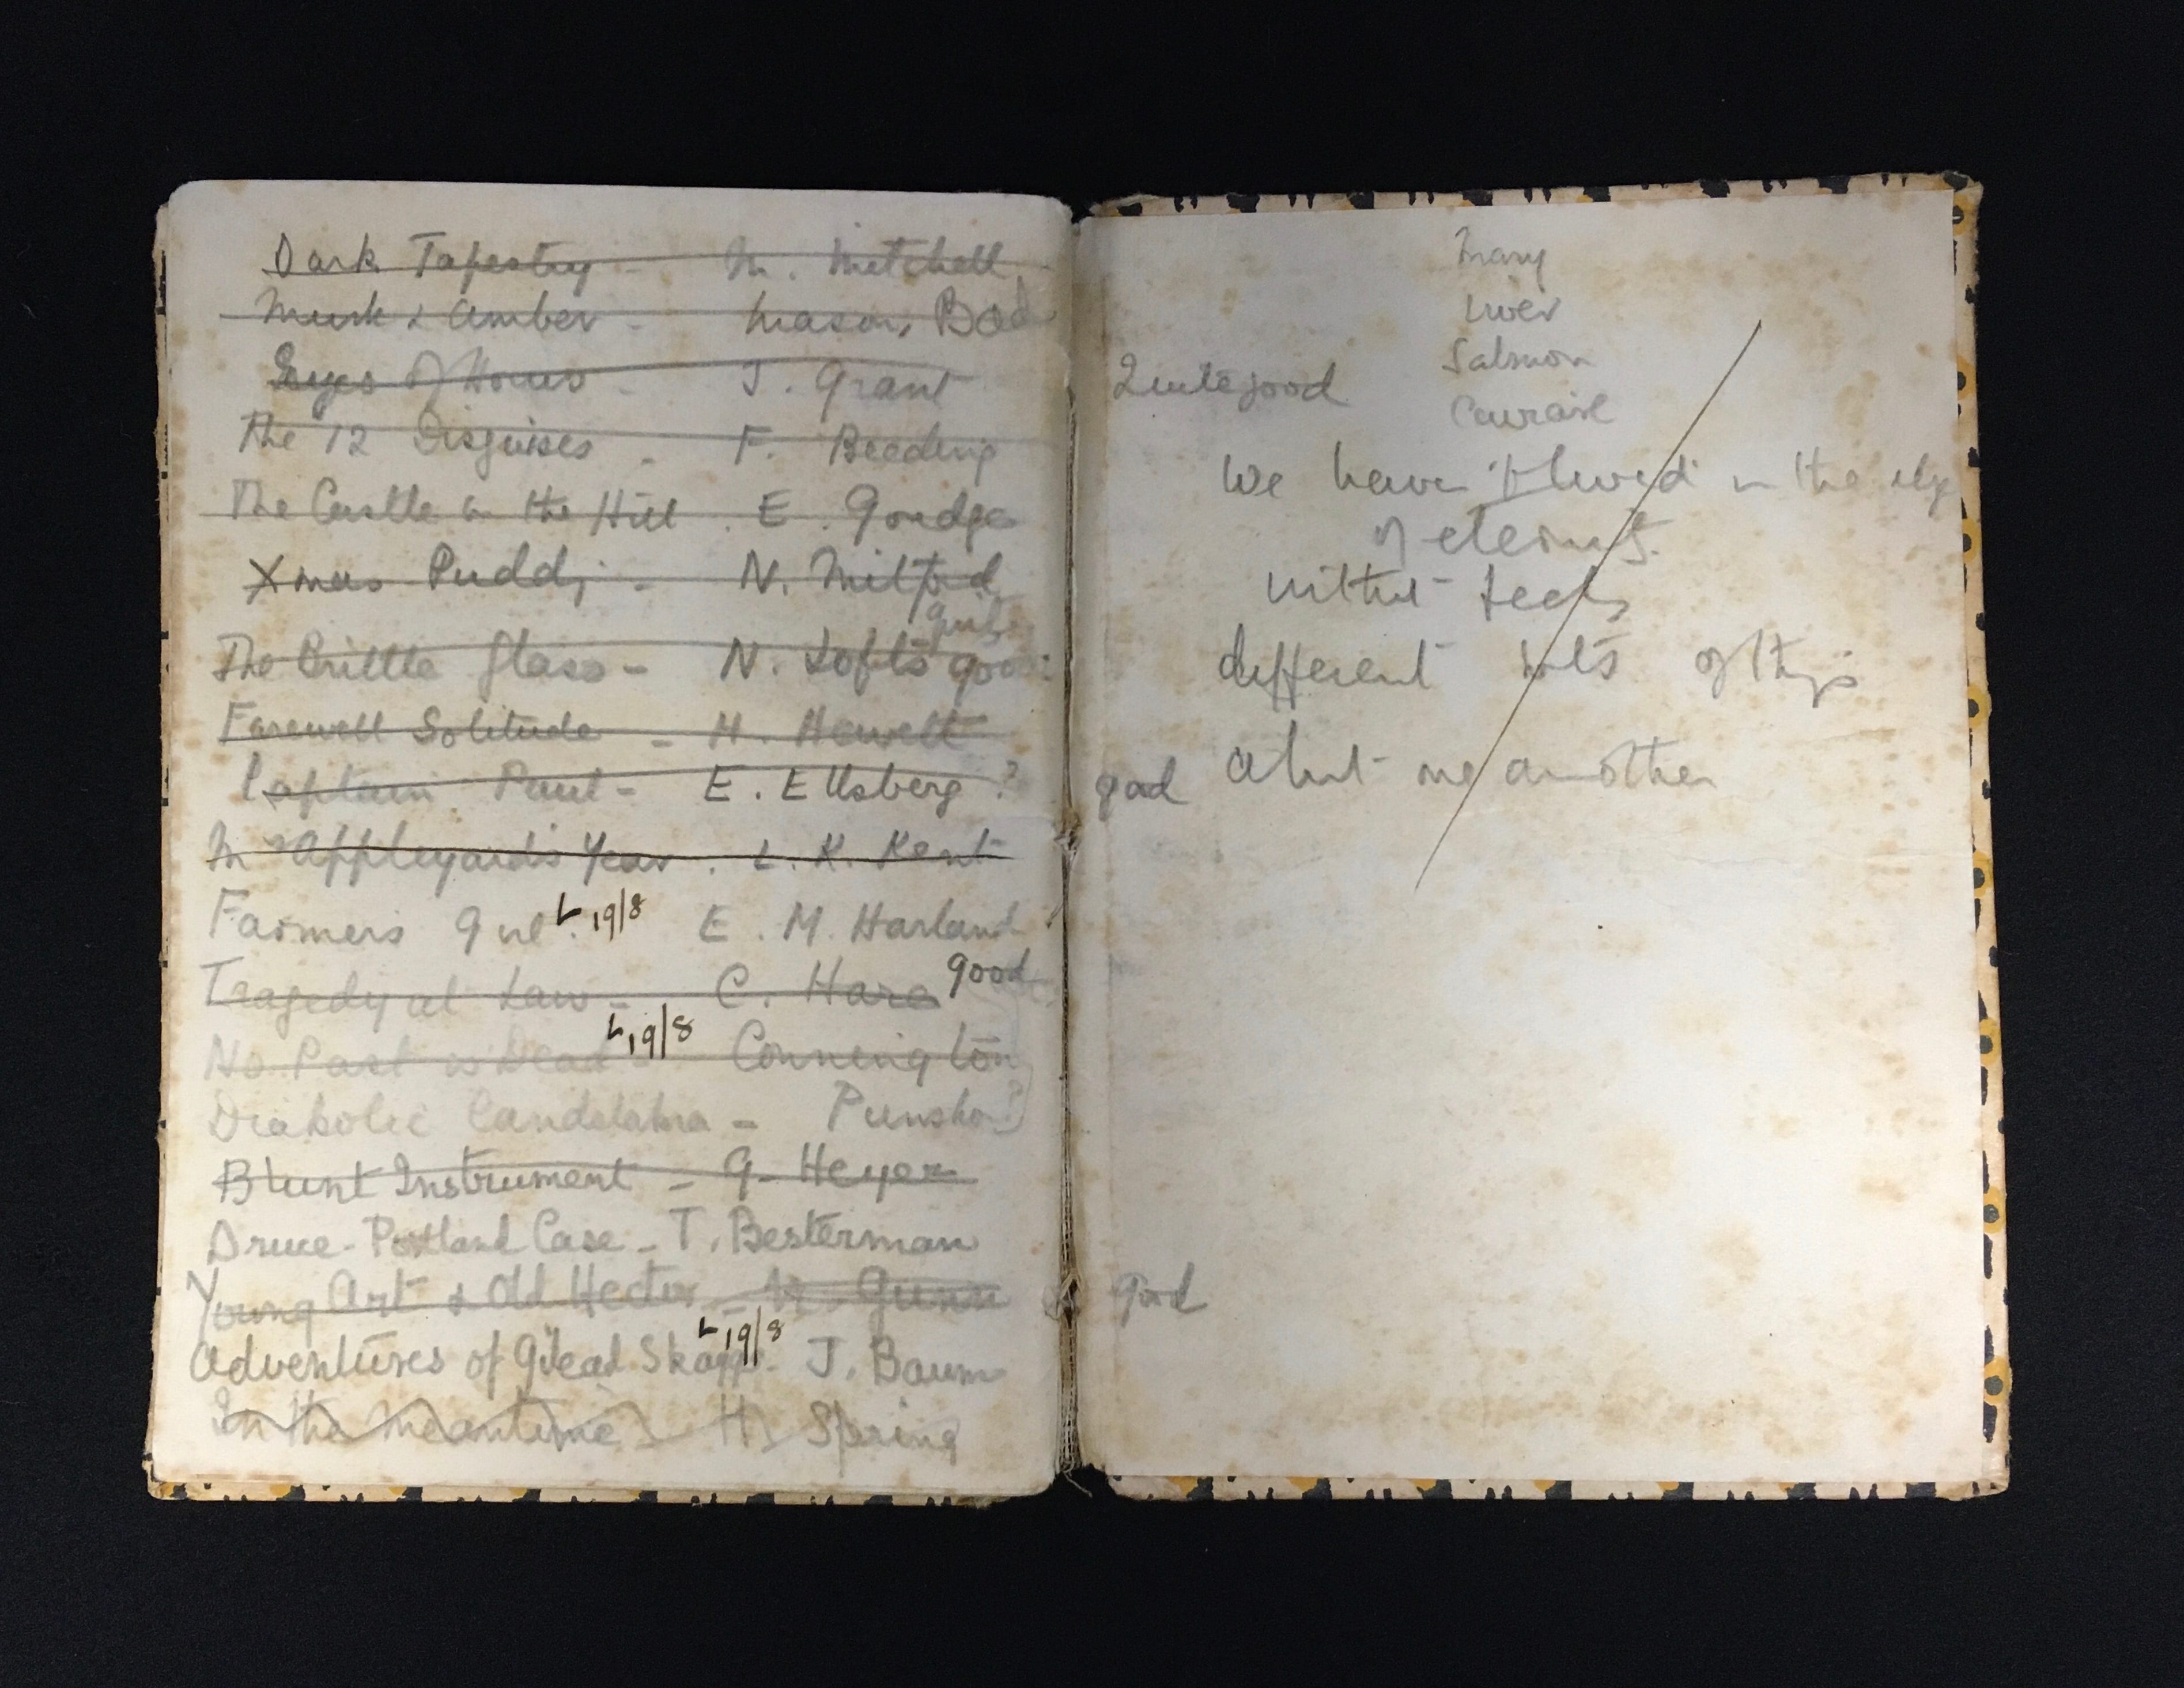 Dark Tapestry - M. Mitchell
Musk & Amber - Mason, Bad
Eyes of Horus - J. Grant
The 12 Disguises - F. Beeding
The Castle on the Hill - E. Goudge
Xmas Pudd - N. Mitford
quite
The Brittle Glass - N. Lofts good
Farewell Solitude - H. Hewett
Captain Paul - E. Ellsberg ?
Mrs Appleyard's Year - L. K. Kent
Farmers Girl. L 19/8 E. M. Harland
good
Tragedy at Law - C. Hare
L 19/8
No Past is Dead - Connington
Diabolic Candelabra - Punshon
Blunt Instrument - G. Heyer
Druce-Portland Case - T. Besterman
Young Art & Old Hector - N. Gunn
L 19/8
Adventures of Gilead Skaggs. J. Baum
In the Meantime - H. Spring
Mary
Liver
Salmon
Quite good
We have in the
of eternity
different of things
good about one another
Good